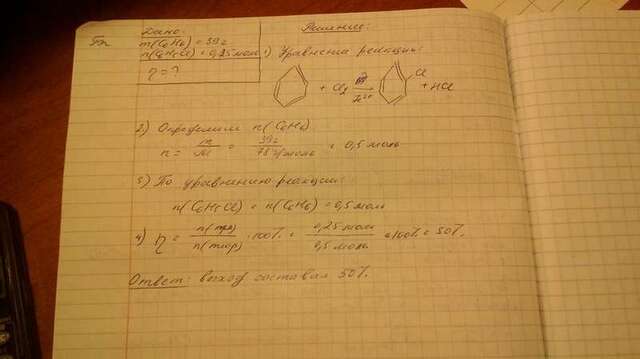 Дано:
Решение:
m(C6H6) = 39г
n(C6H5Cl) = 0,25 моль
η = ?
1) Уравнение реакции:
+ Cl2 → Cl + HCl
2) Определим n(C6H6)
n = m/M = 39г/78г/моль = 0,5 моль
3) По уравнению реакции:
n(C6H5Cl) = n(C6H6) = 0,5 моль
4) η = n(пр)/n(теор) · 100% = 0,25 моль/0,5 моль · 100% = 50%.
Ответ: выход составил 50%.